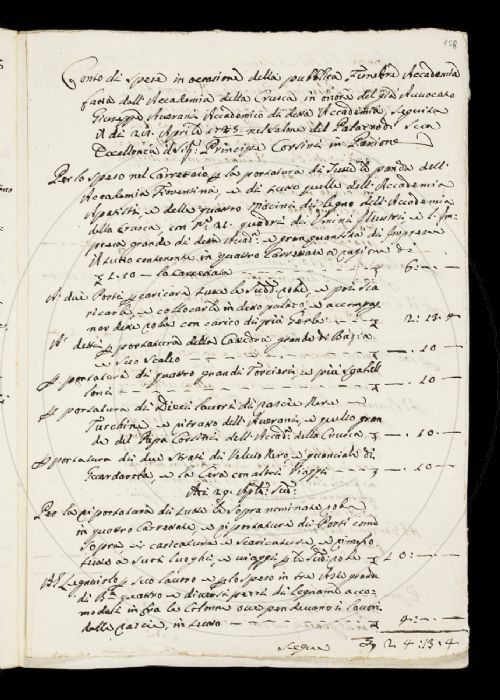 158
Conto di spese in occasione della pubblica Funebre Accademia
fatta dall'Accademia della Crusca in onore del già Avvocato
Giuseppe Averani Accademico di detta Accademia, seguita
il dì 28. Aprile nel salone del Palazzo di Sua
Eccellenza il Sig.r Principe Corsini in Parione
Per lo speso nel Carrettaio p. la portatura di tutte le panche dell'
Accademia Fiorentina, e di tutte quelle dell'Accademia
Apatisti, e delle quattro di legno dell'Accademia
della Crusca, con N.o 21. quadri di Uomini Illustri, e l'Im=
presa grande di detta Accad.a e gran quantità di Imprese
il tutto contenente in quattro Carrettate a ragione di
£ 1.10 — la Carrettata — — — £ 6: — . —
A' due Porti p. caricare tutte le sudd.e robe, e poi sca
ricarle, e collocarle in detto palazzo, e accompag
nar dette robe con carico di più — £ 2: 13. 4
A' detti p. portatura della grande di
e suo Scalco — — £ — . 10 —
p. portatura di quattro grandi Torcieri, e più Sgabel
loni — — — £ — . 10 —
p. portatura di Dieci lavori di rascie Nere, e
Turchine, e ritratto dell'Averani, e quello gran
de del Papa Corsini, dell'Accad.a della Crusca £ — . 10. —
p. portatura di due strati di Velluto Nero, e
, e la Cera con altri Viaggi £ — . 10 —
A dì 29. Aple. sud.o
Per la riportatura di tutte le sopra nominate robe
in quattro Carrettate, e riportatura di Porti come
sopra, e caricatura, e scaricatura, e rimesso
tutto a suoi luoghi, e viaggi p. le sud.e robe £ 10: — . —
Al Legnaiolo p. suo lavoro e p. lo speso in tre Aste grandi
di B.a quattro, e diversi pezzi di Legname acco=
modati in fra le Colonne ove pendevano i lavori
delle rascie, in tutto — — 4: — . —
Segue £ 24: 13. 4